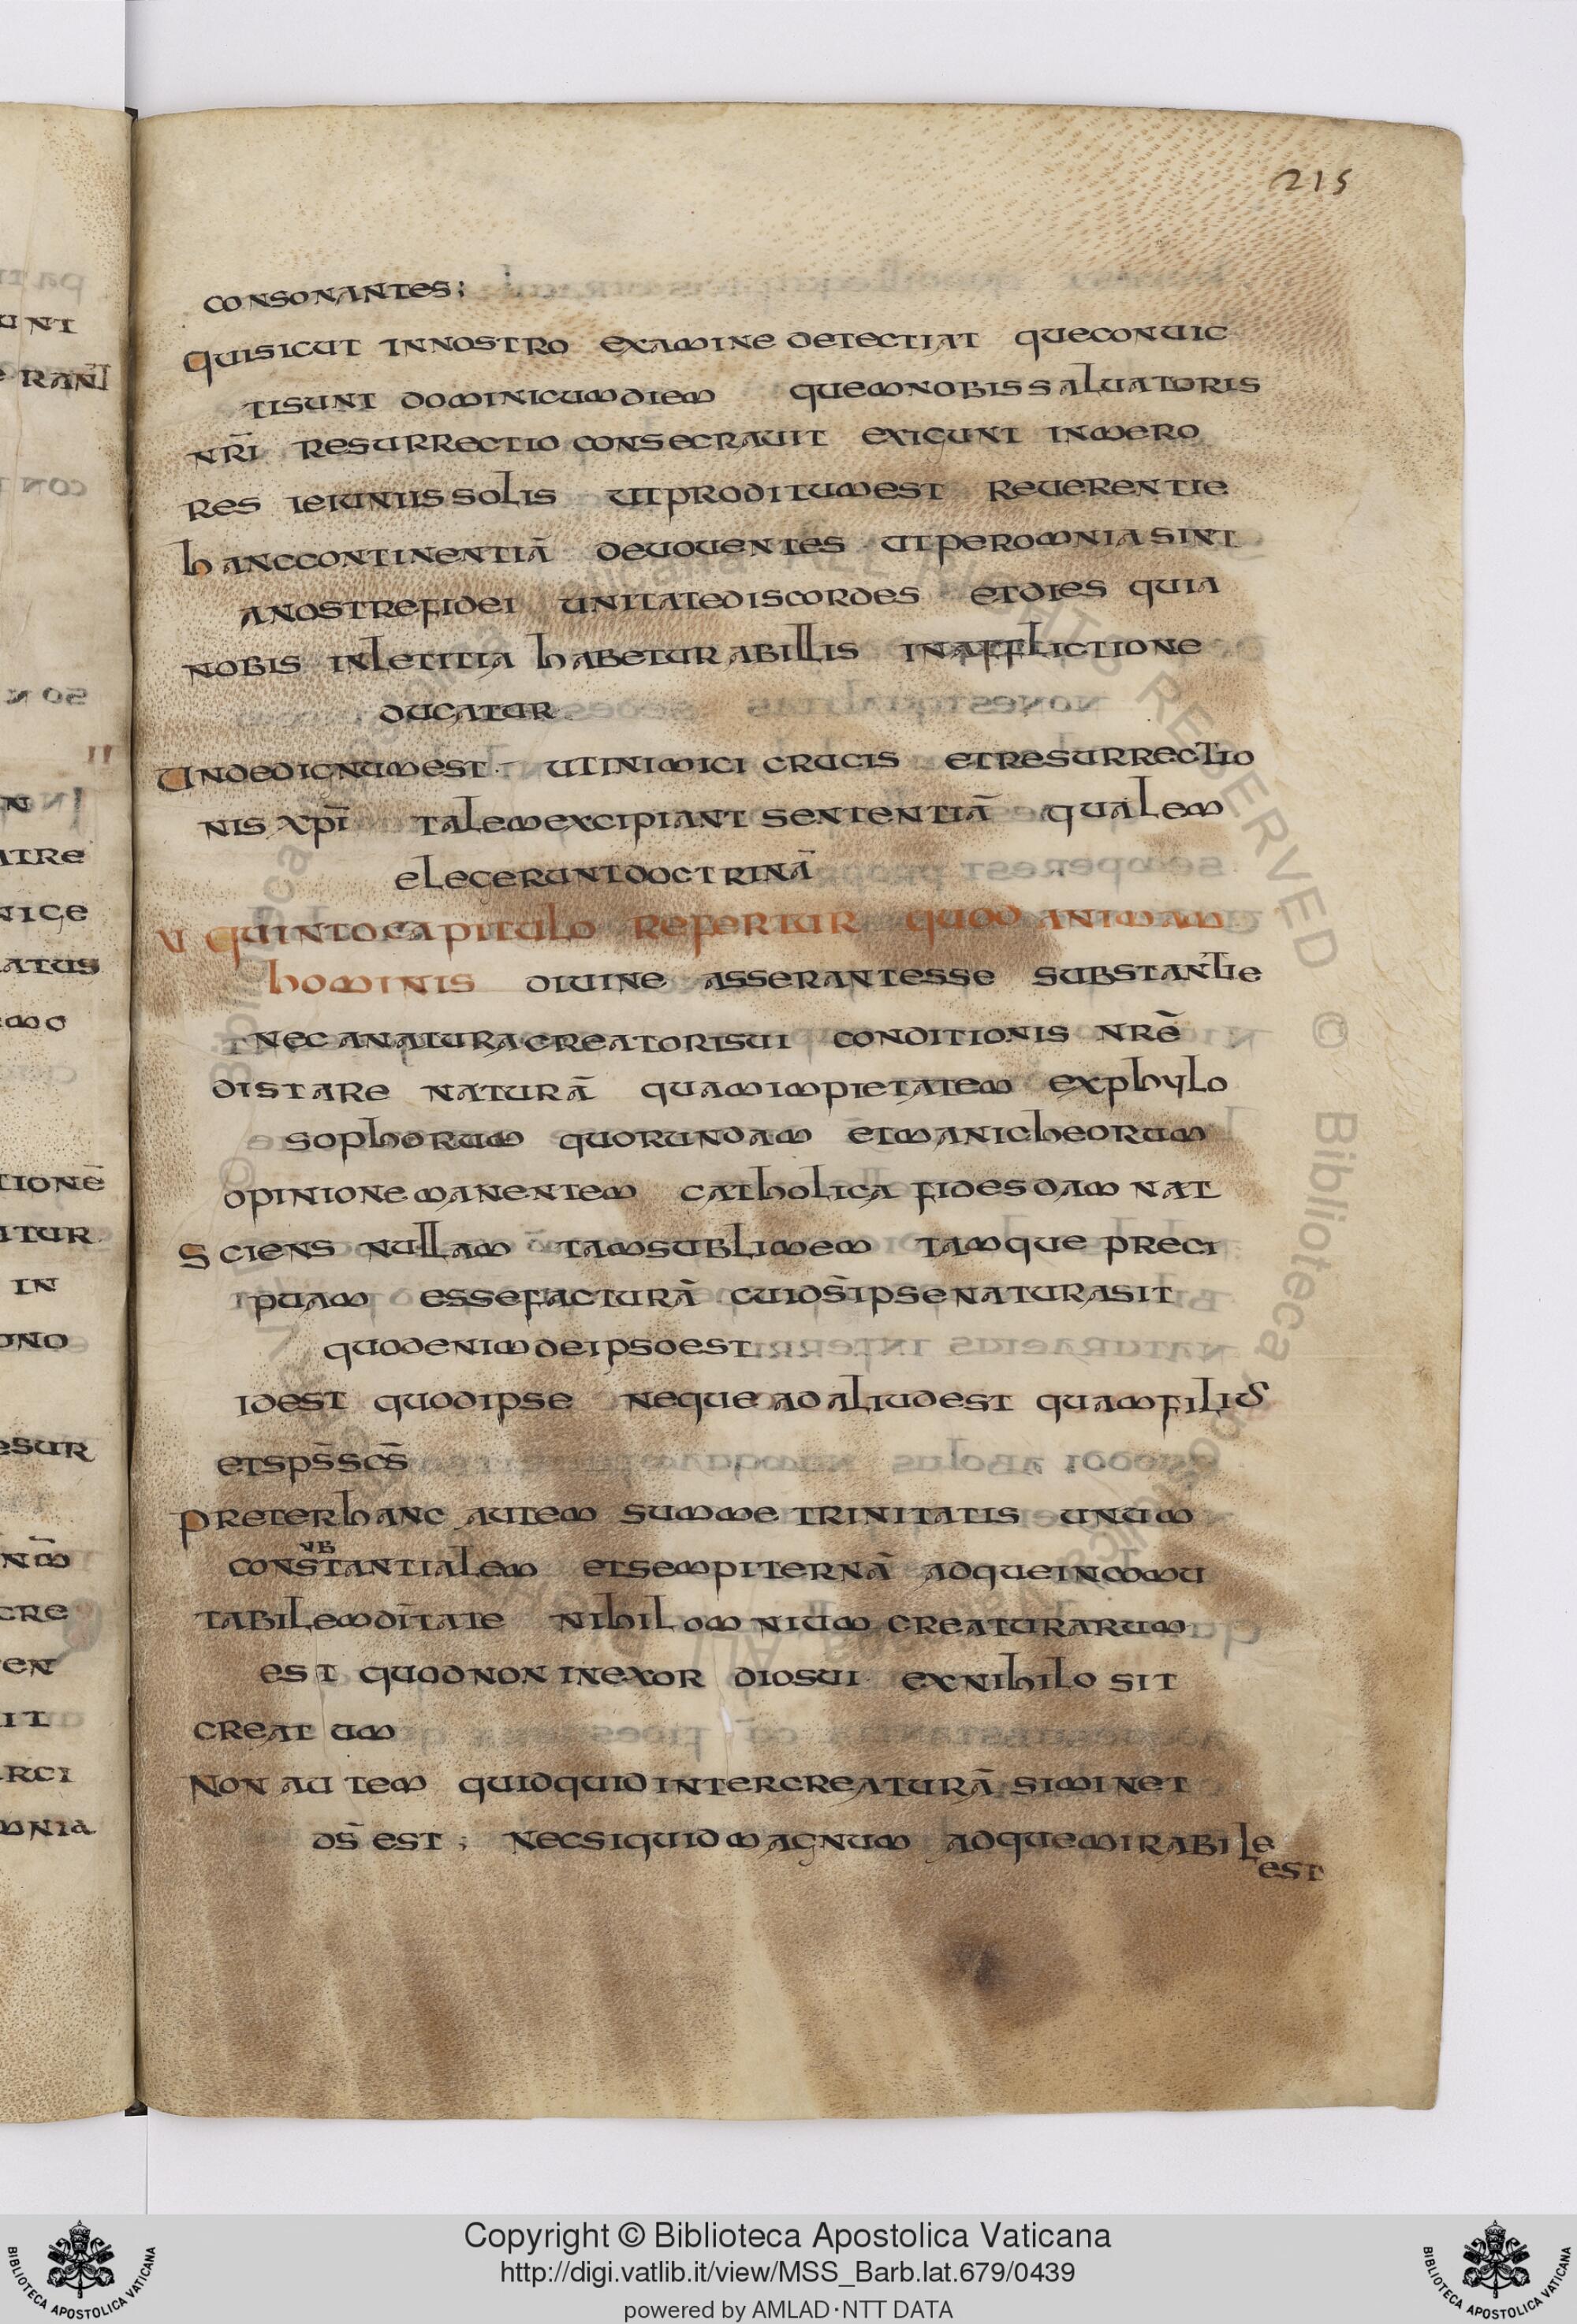 215
consonantes;
quisicut innostro examine detectiat queconuic
tisunt dominicumdiem quemnobissaluatoris
nr̄i resurrectio consecrauit exigunt inmero
res ieiuniissolis utproditumest reuerentie
hanccontinentiā deuouentes utperomniasint
anostrefidei unitatediscordes etdies quia
nobis inletitia habetur abillis inafflictione
ducatur
undedignumest· utinimici crucis etresurrectio
nis xp̄i talemexcipiant sententiā qualem
elegeruntdoctrinā
V quintocapitulo refertur quod animam
hominis diuine asserantesse substantie
nec anaturacreatorisui conditionis nrē
distare naturā quamimpietatem exphylo
sophorum quorundam etmanicheorum
opinionemanentem catholica fidesdamnat
sciens nullam tamsublimem tamque preci
puam essefacturā cuids̄ipsenaturasit
quodenimdeipsoest
idest quodipse neque adaliudest quamfilius
etsps̄scs̄
preterhanc autem summe trinitatis unum
vb
constantialem etsempiternā adqueincomu
tabilemdītate nihilomnium creaturarum
est quodnon inexor diosui exnihilo sit
creatum
Non autem quidquidintercreaturā siminet
ds̄ est; necsiquidmagnum adquemirabile
est
unt
erant
n
atre
nice
atus
emo
tionē
itur
in
ono
esur
nm̄
cre
en
it
rci
mnia
Copyright © Biblioteca Apostolica Vaticana
http://digi.vatlib.it/view/MSS_Barb.lat.679/0439
powered by AMLAD·NTT DATA
BIBLIOTECA APOSTOLICA VATICANA
BIBLIOTECA APOSTOLICA VATICANA